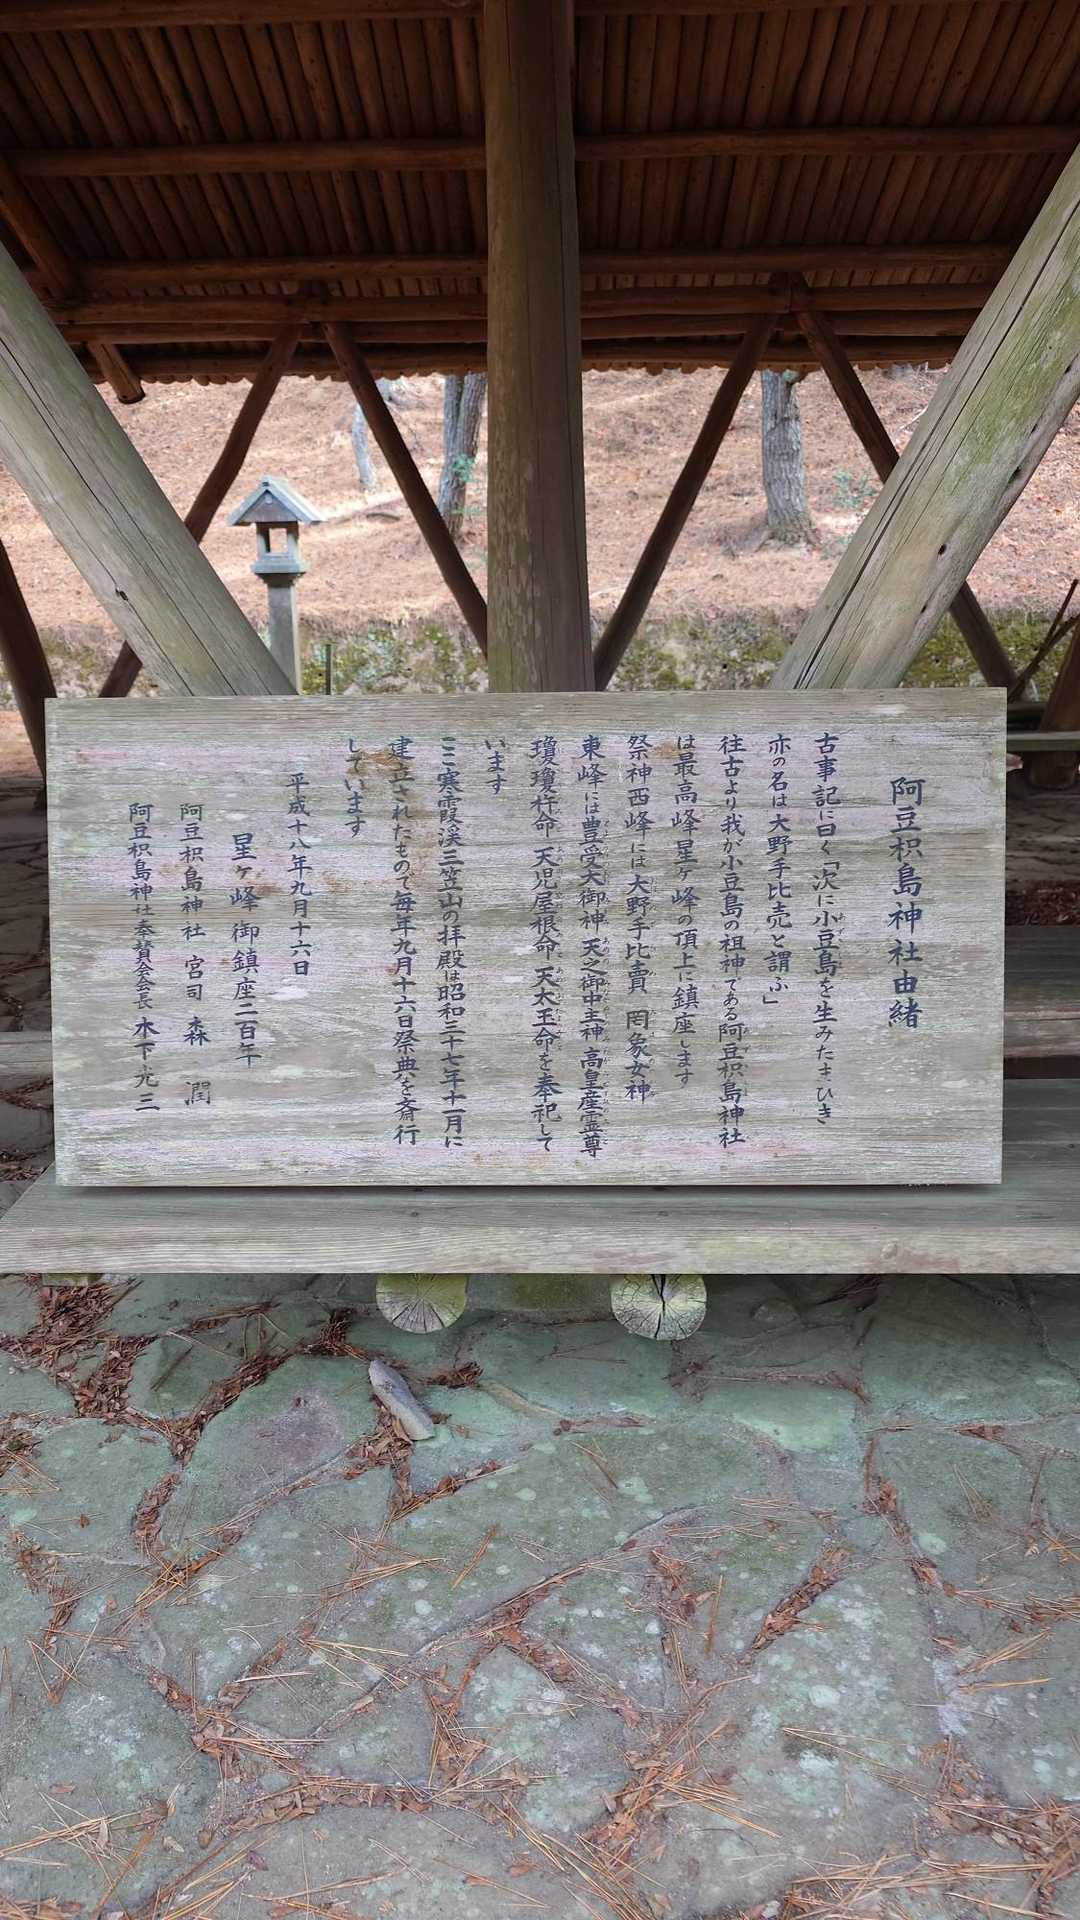 阿豆枳島神社由緒
古事記に曰く「次に小豆島を生みたまひき
亦の名は大野手比売と謂ふ」
往古より我が小豆島の祖神である阿豆枳島神社
は最高峰星ヶ峰の頂上に鎮座します
祭神西峰には大野手比賣 罔象女神
東峰には豊受大御神 天之御中主神 高皇産霊尊
瓊瓊杵命 天児屋根命 天太玉命を奉祀して
います
ここ寒霞渓三笠山の拝殿は昭和三十七年十一月に
建立されたもので毎年九月十六日祭典を斎行
しています
平成十八年九月十六日
星ヶ峰 御鎮座二百年
阿豆枳島神社 宮司 森 潤
阿豆枳島神社奉賛会会長 木下光三